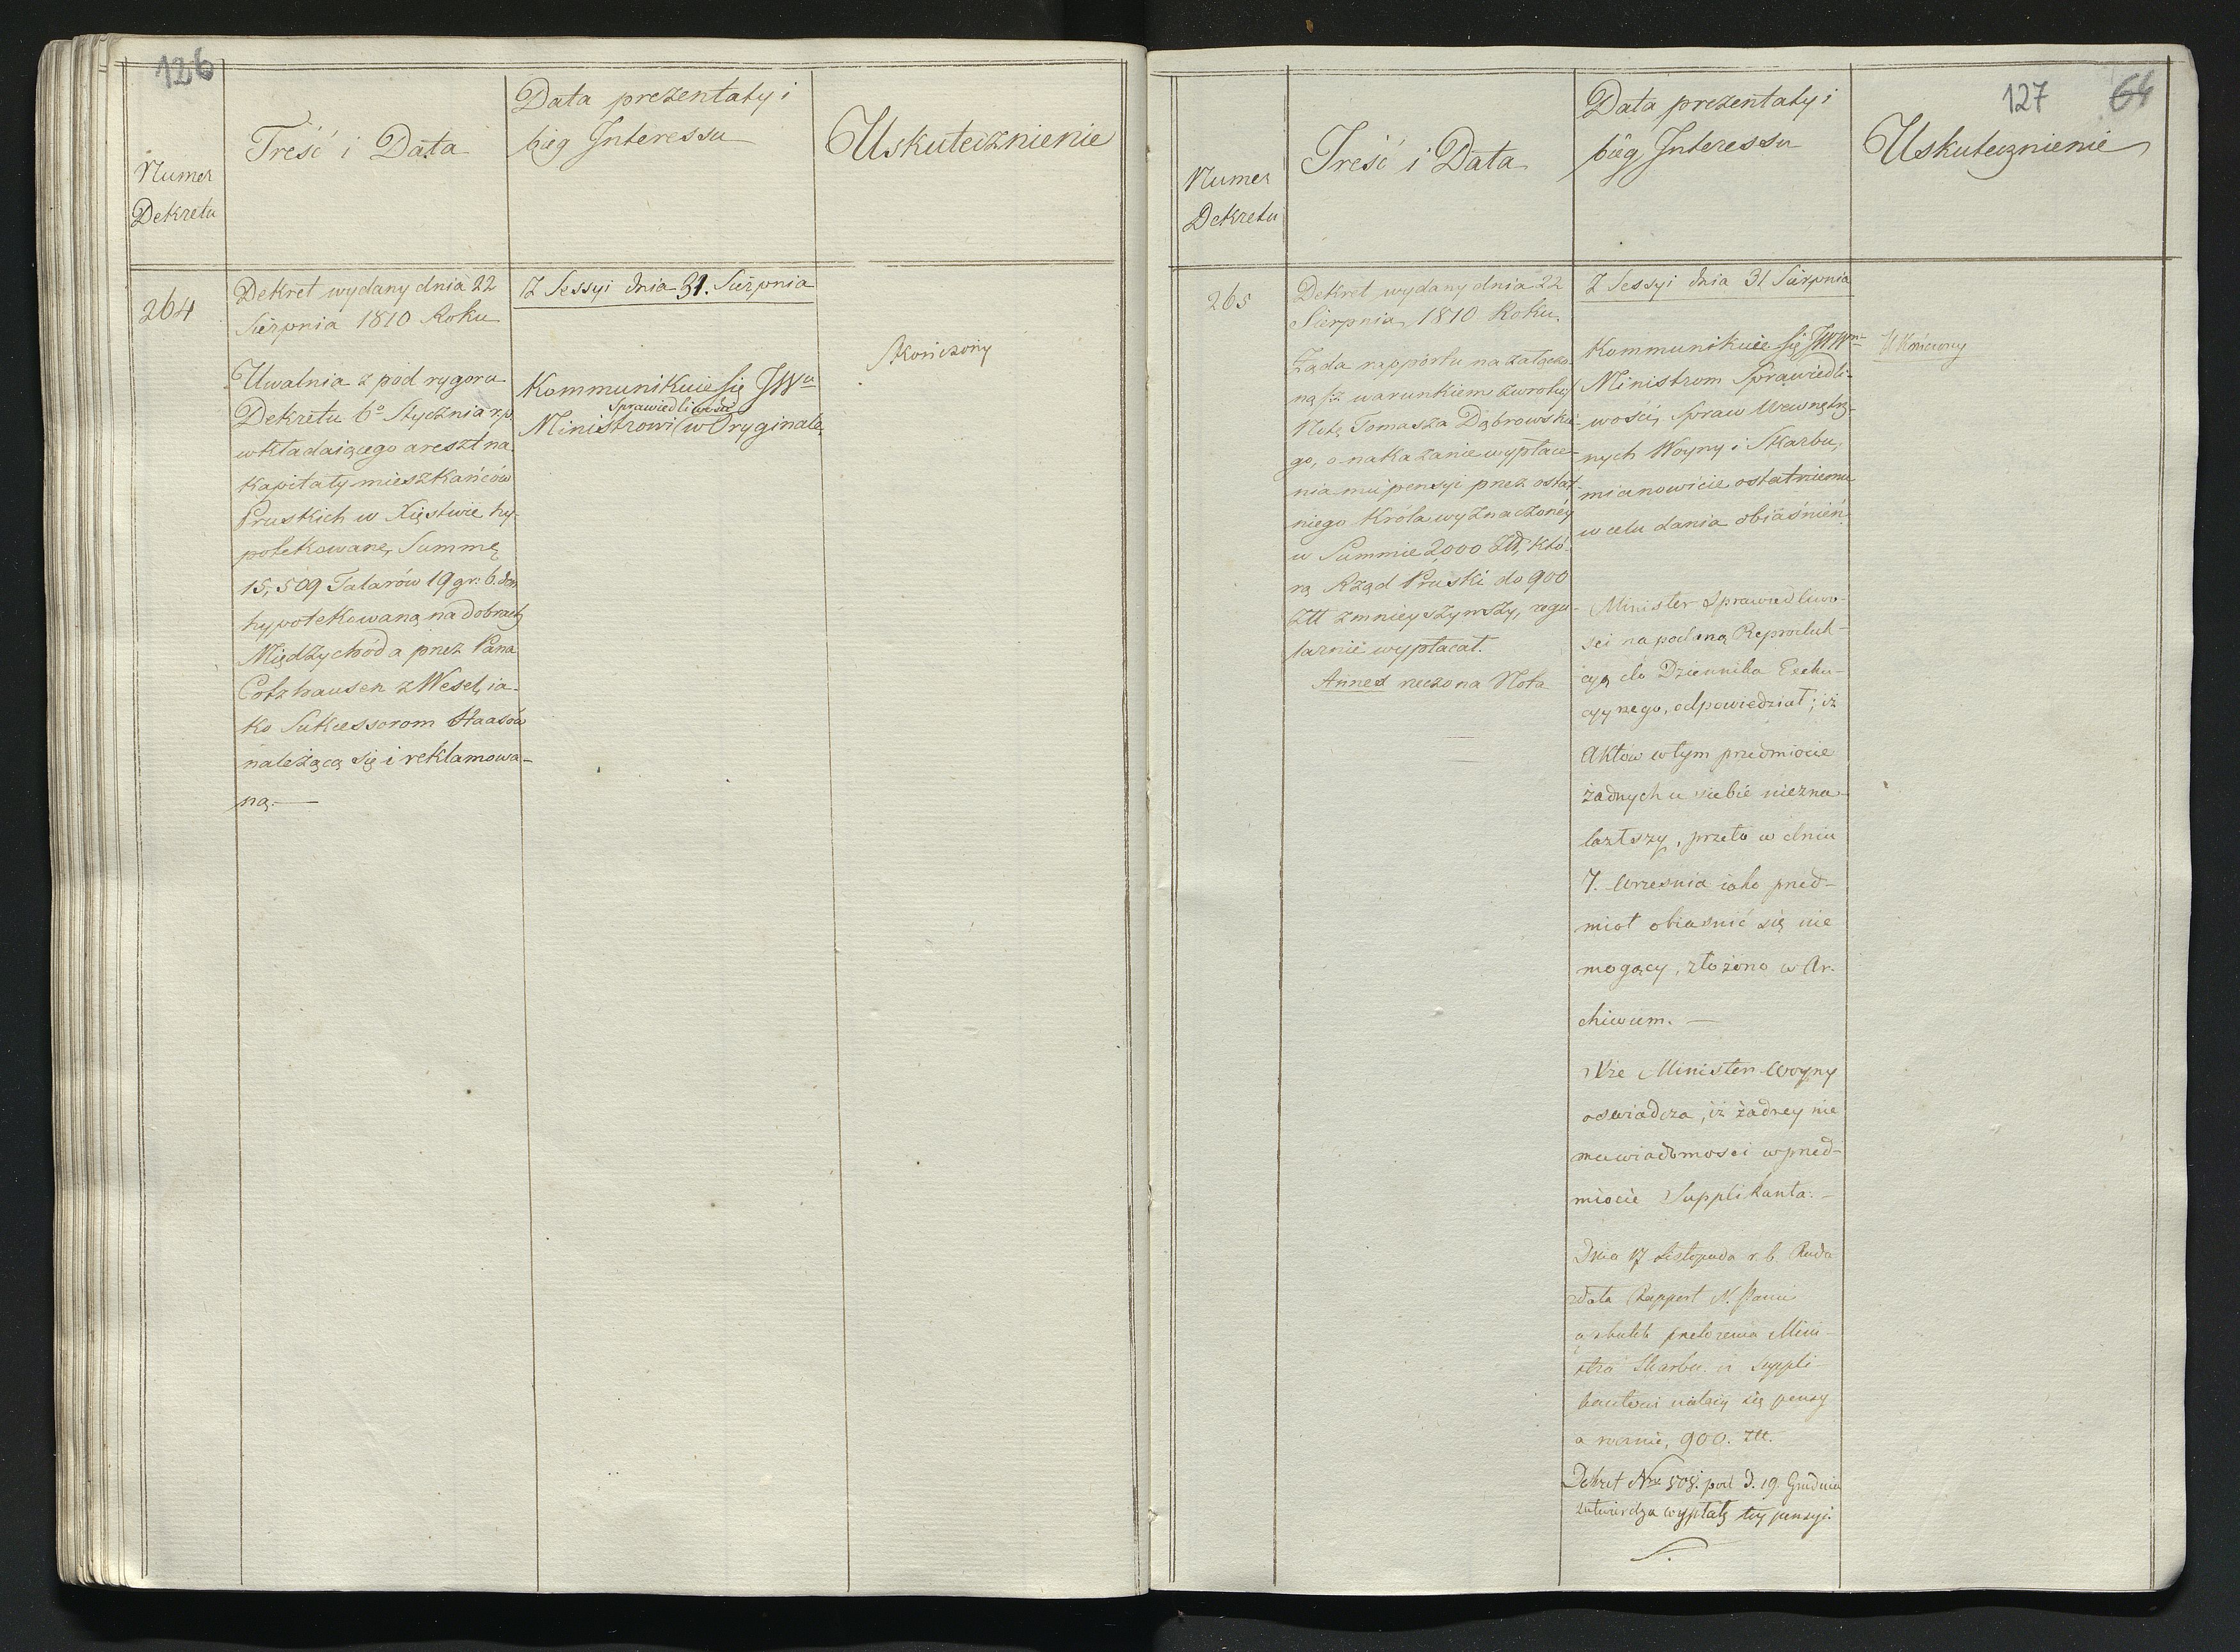 126
Numer
Dekretu
Treść i Data
Data prezentaty i
bieg Interessu
Uskutecznienie
264
Dekret wydany dnia 22
Sierpnia 1810 Roku
Uwalnia z pod rygoru
Dekretu 6º Stycznia r. p.
wkładaiącego areszt na
kapitały mieszkańców
Pruskich w Xięstwie hy-
potekowane, Summę
15,509 Talarów 19 gr: 6. den.
hypotekowaną na dobrach
Międzychód a przez Pana
Cotzhausen z Wesel, ia-
ko Sukcessorom Haasów
należącą się i reklamowa-
ną.—
Z Sessyi dnia 31. Sierpnia
Kommunikuie się JWu
Sprawiedliwości
Ministrowi (w Oryginale
Skończony
127 64
Numer
Dekretu
Treść i Data
Data prezentaty i
bieg Interessu
Uskutecznienie
265
Dekret wydany dnia 22
Sierpnia 1810 Roku.
Żąda rapportu na załączo-
ną /:z warunkiem zwrotu:/
Notę Tomasza Dąbrowskie-
go, o nakazanie wypłace-
nia mu pensyi przez ostat-
niego Króla wyznaczoney
w Summie 2000 Złł, któ-
rą Rząd Pruski do 900
Złł zmnieyszywszy, regu-
larnie wypłacał.
Annex rzeczona Nota
Z Sessyi dnia 31 Sierpnia
Kommunikuie się JWWm
Ministrom Sprawiedli-
wości, Spraw Wewnętrz-
nych Woyny i Skarbu,
mianowicie ostatniemu
w celu dania obiaśnień
Minister Sprawiedliwo-
ści na podaną Reproduk-
cyą do Dziennika Exeku-
cyynego, odpowiedział; iż
Aktów w tym przedmiocie
żadnych u siebie niezna-
lazłszy, przeto w dniu
7. Września iako przed-
miot obiaśnić się nie
mogący, złożono w Ar-
chiwum.—
Minister Woyny
oświadcza, iż żadney nie
ma wiadomości w przed-
miocie Supplikanta.—
Dnia 17 Listopada r. b. Rada
zdała Rapport N. Panu
w skutek przełożenia Mini-
stra Skarbu iż Suppli-
kantowi należy się pensy
a rocznie, 900. Złł.
Dekret Nro 508. pod d. 19 Grudnia
zatwierdza wypłatę tey pensyi.
Ukończony